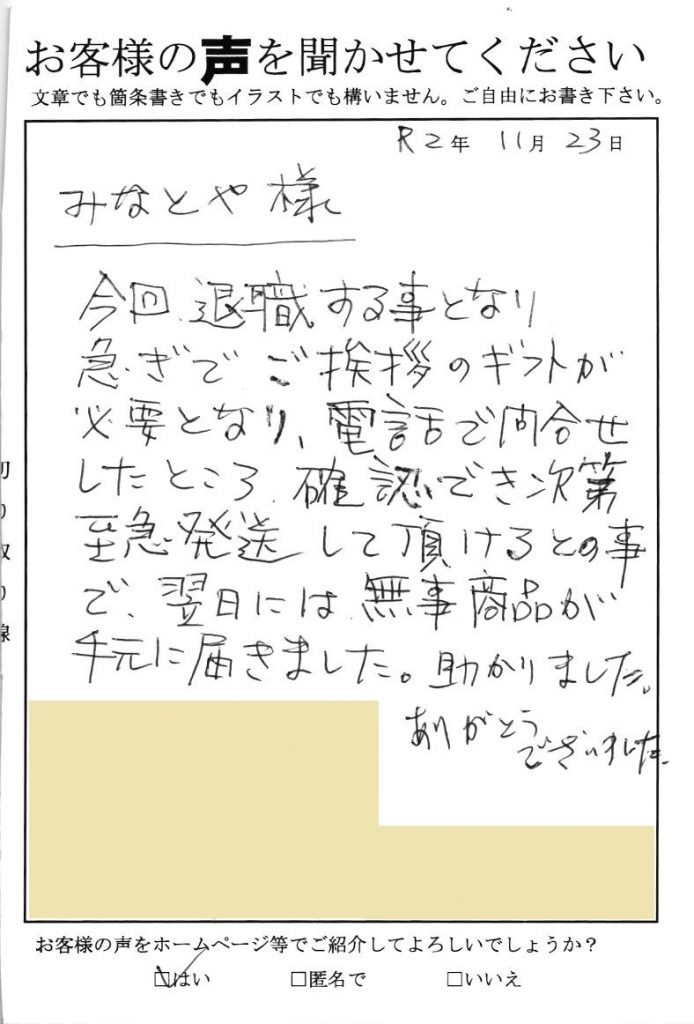 お客様の声を聞かせてください
文章でも箇条書きでもイラストでも構いません。ご自由にお書き下さい。
R2年 11月 23日
みなとや様
今回、退職する事となり
急ぎで ご挨拶のギフトが
必要となり、電話で問合せ
したところ、確認でき次第
至急発送して頂けるとの事
で、翌日には無事商品が
手元に届きました。助かりました。
ありがとう
ございました。
切り取り線
お客様の声をホームページ等でご紹介してよろしいでしょうか？
☑はい □匿名で □いいえ